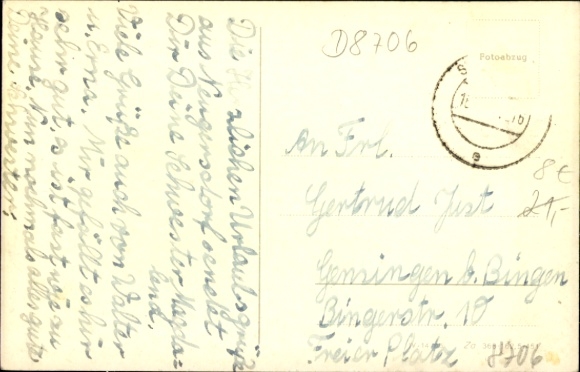 Die Herzlichen Urlaubsgrüße
aus Neugersdorf sendet
Dir Deine Schwester Magda-
lena.
Viele Grüße auch von Walter
u. Erna. Mir gefällt es hier
sehr gut, es ist fast wie zu
Hause. Nun nochmals alles gute
Deine Schwester.
D8706
Fotoabzug
8€
21,-
An Frl.
Gertrud Just
Gensingen b. Bingen
Bingerstr. 10
Freier Platz
8706